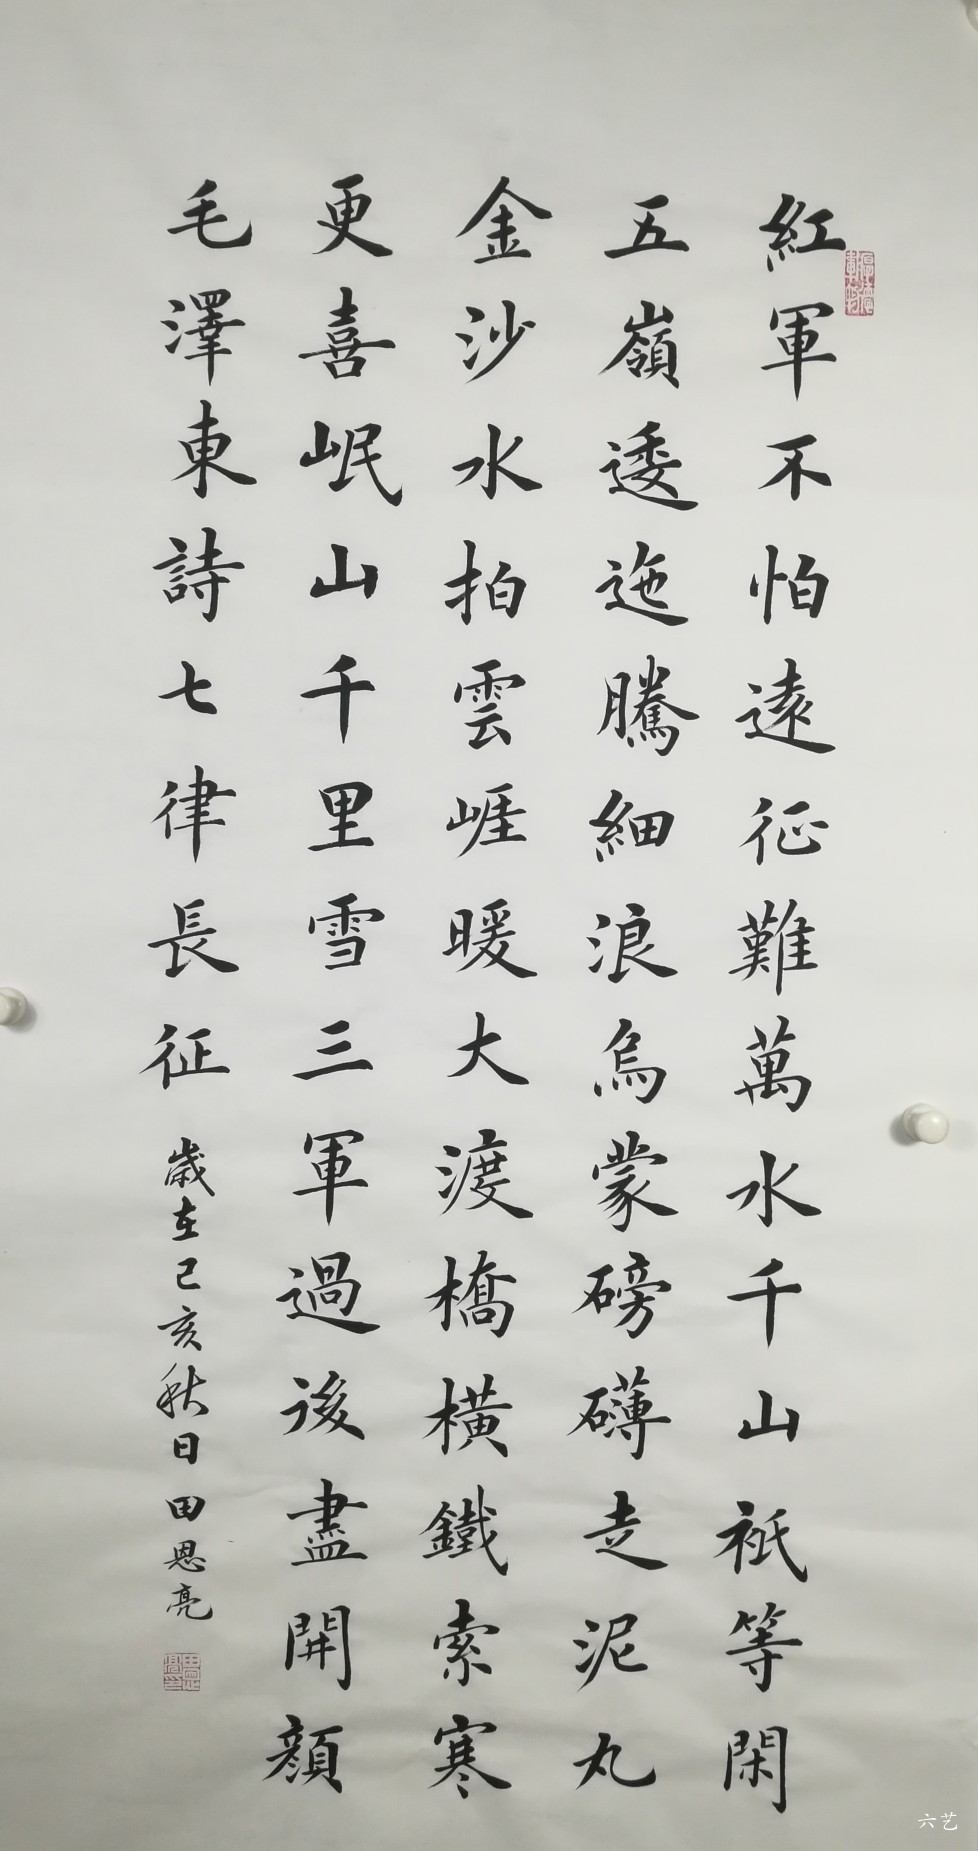 紅軍不怕遠征難萬水千山祇等閑
五嶺逶迤騰細浪烏蒙磅礴走泥丸
金沙水拍雲崖暖大渡橋橫鐵索寒
更喜岷山千里雪三軍過後盡開顔
毛澤東詩七律長征 歲在己亥秋日 田恩亮
六艺